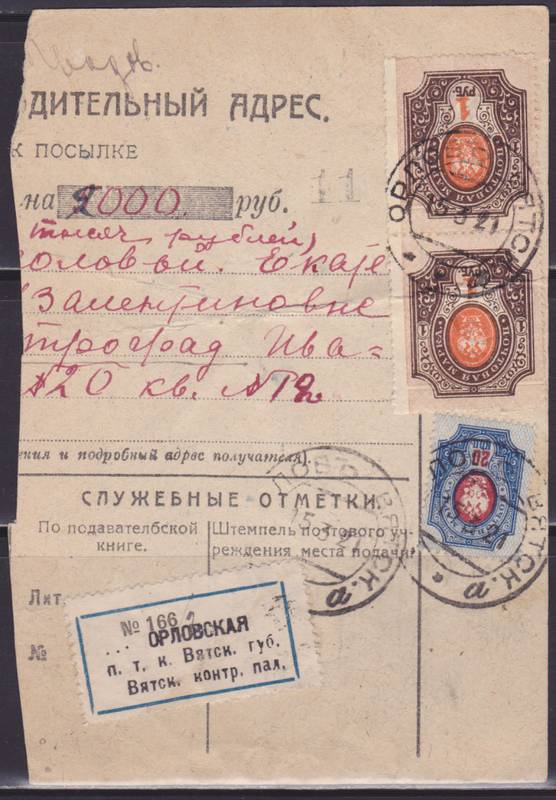 ДИТЕЛЬНЫЙ АДРЕС.
К ПОСЫЛКЕ
на 2000 руб. 11
тысяч рублей
Екате
Валентиновне
троград Ива-
20 кв. №12
ения и подробный адрес получателя).
СЛУЖЕБНЫЕ ОТМЕТКИ.
По подавателбской
книге.
Штемпель почтового уч-
реждения места подачи.
Лит.
№
№ 166
... ОРЛОВСКАЯ
п. т. к. Вятск. губ.
Вятск. контр. пал.
1
РУБ
15 3 21
ВЯТСК.
1
20
КОП
ВЯТСК. а
15 3 21
ВЯТСК. а